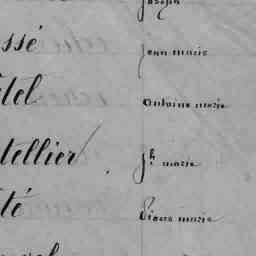 Joseph
ssé Jean marie
tel Antoine marie
tellier Jh marie
té Pierre marie